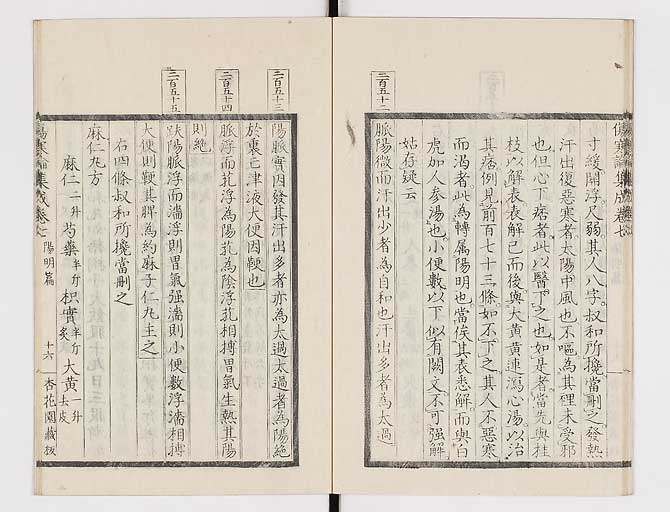 傷寒論集成卷七
寸緩關浮尺弱其人八字叔和所攙當刪之發熱
汗出復惡寒者太陽中風也不嘔為其裡未受邪
也但心下痞者此以醫下之也如是者當先與桂
枝以解表表解已而後與大黃黃連瀉心湯以治
其痞例見前百七十三條如不下之其人不惡寒
而渴者此為轉屬陽明也當俟其表悉解而與白
虎加人參湯也小便數以下似有闕文不可強解
姑存疑云
二百五十二
脈陽微而汗出少者為自和也汗出多者為太過
二百五十三
陽脈實因發其汗出多者亦為太過太過者為陽絕
於裏亡津液大便因鞕也
二百五十四
脈浮而芤浮為陽芤為陰浮芤相搏胃氣生熱其陽
則絕
二百五十五
趺陽脈浮而濇浮則胃氣强濇則小便數浮濇相搏
大便則鞕其脾為約麻子仁丸主之
右四條叔和所攙當刪之
麻仁丸方
麻仁二升 芍藥半斤 枳實半斤炙 大黃一斤去皮
傷寒論集成卷七 陽明篇 十六 杏花園藏板